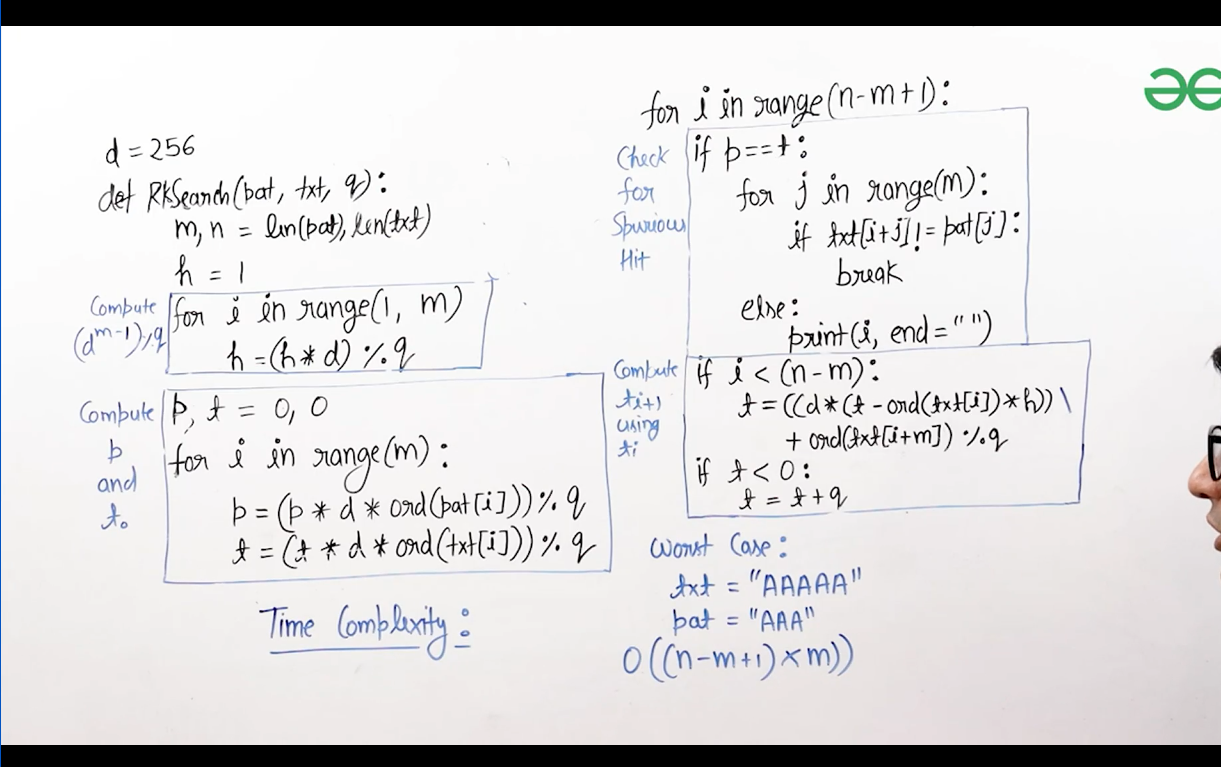 d = 256
def RKSearch(pat, txt, q):
m, n = len(pat), len(txt)
h = 1
Compute
(d^m-1)%q
for i in range(1, m)
h = (h * d) % q
Compute
p
and
t₀
p, t = 0, 0
for i in range(m):
p = (p * d * ord(pat[i])) % q
t = (t * d * ord(txt[i])) % q
Time Complexity:
for i in range(n-m+1):
Check
for
Spurious
Hit
if p==t:
for j in range(m):
if txt[i+j] != pat[j]:
break
else:
print(i, end=" ")
Compute
ti+1
using
ti
if i < (n-m):
t = ((d*(t - ord(txt[i])*h)) \
+ ord(txt[i+m]) % q
if t < 0:
t = t + q
Worst Case:
txt = "AAAAA"
pat = "AAA"
O((n-m+1)×m))